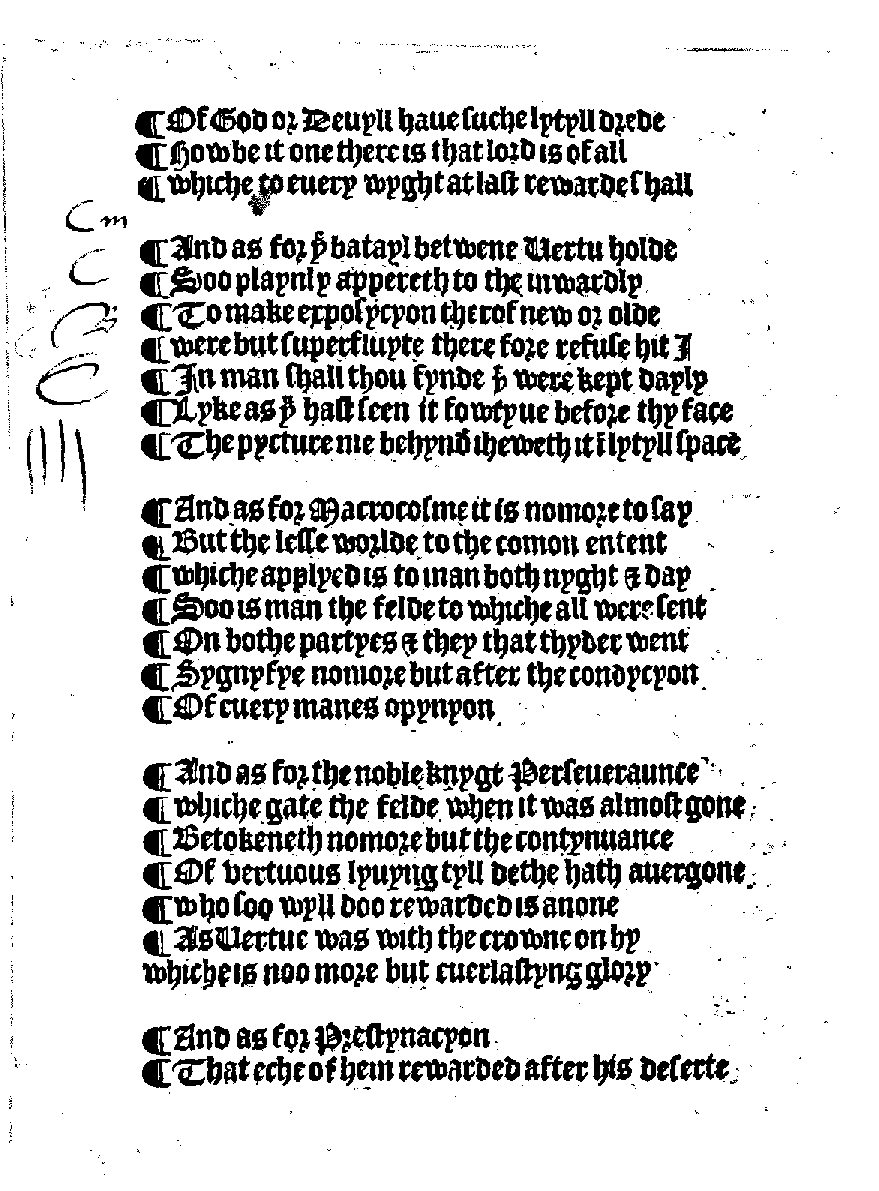 ¶ Of God oꝛ Deuyll haue ſuche lytyll dꝛede
¶ How be it one there is that loꝛd is of all
¶ whiche to euery wyght at laſt rewarde ſhall
C m
¶ And as foꝛ yͤ batayl betwene Uertu holde
¶ Soo playnly appereth to the inwardly
¶ To make expoſycyon therof new oꝛ olde
¶ were but ſuperfluyte there foꝛe refuſe hit I
¶ In man ſhall thou fynde yͭ were kept dayly
¶ Lyke as yͧ haſt ſeen it fowtyue befoꝛe thy face
¶ The pycture me behynd ſheweth it ī lytyll ſpace
¶ And as foꝛ Macrocoſme it is nomoꝛe to ſay
¶ But the leſſe woꝛlde to the comon entent
¶ whiche applyed is to man both nyght ⁊ day
¶ Soo is man the felde to whiche all were ſent
¶ On bothe partyes ⁊ they that thyder went
¶ Sygnyfye nomoꝛe but after the condycyon
¶ Of euery manes opynyon
¶ And as foꝛ the noble knygt Perſeueraunce
¶ whiche gate the felde when it was almoſt gone
¶ Betokeneth nomoꝛe but the contynuance
¶ Of vertuous lyuyng tyll dethe hath auergone
¶ who ſoo wyll doo rewarded is anone
¶ As Uertue was with the crowne on hy
whiche is noo moꝛe but euerlaſtyng gloꝛy
¶ And as foꝛ Pꝛeſtynacyon
¶ That eche of hem rewarded after his deſerte